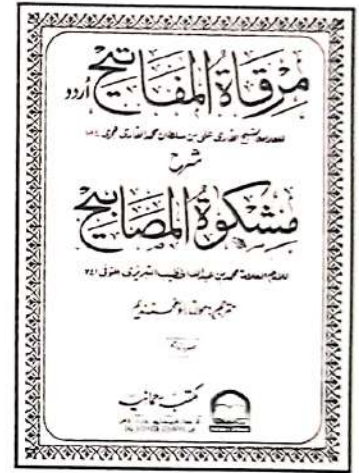 مرقاة المفاتيح اُردو
للعلامة الشيخ القاری علی بن سلطان محمد القاری
شرح
مشكوة المصابيح
للامام العلامة محمد بن عبدالله الخطيب التبريزی المتوفى ٧٤١
مترجم:
مکتبہ رحمانیہ